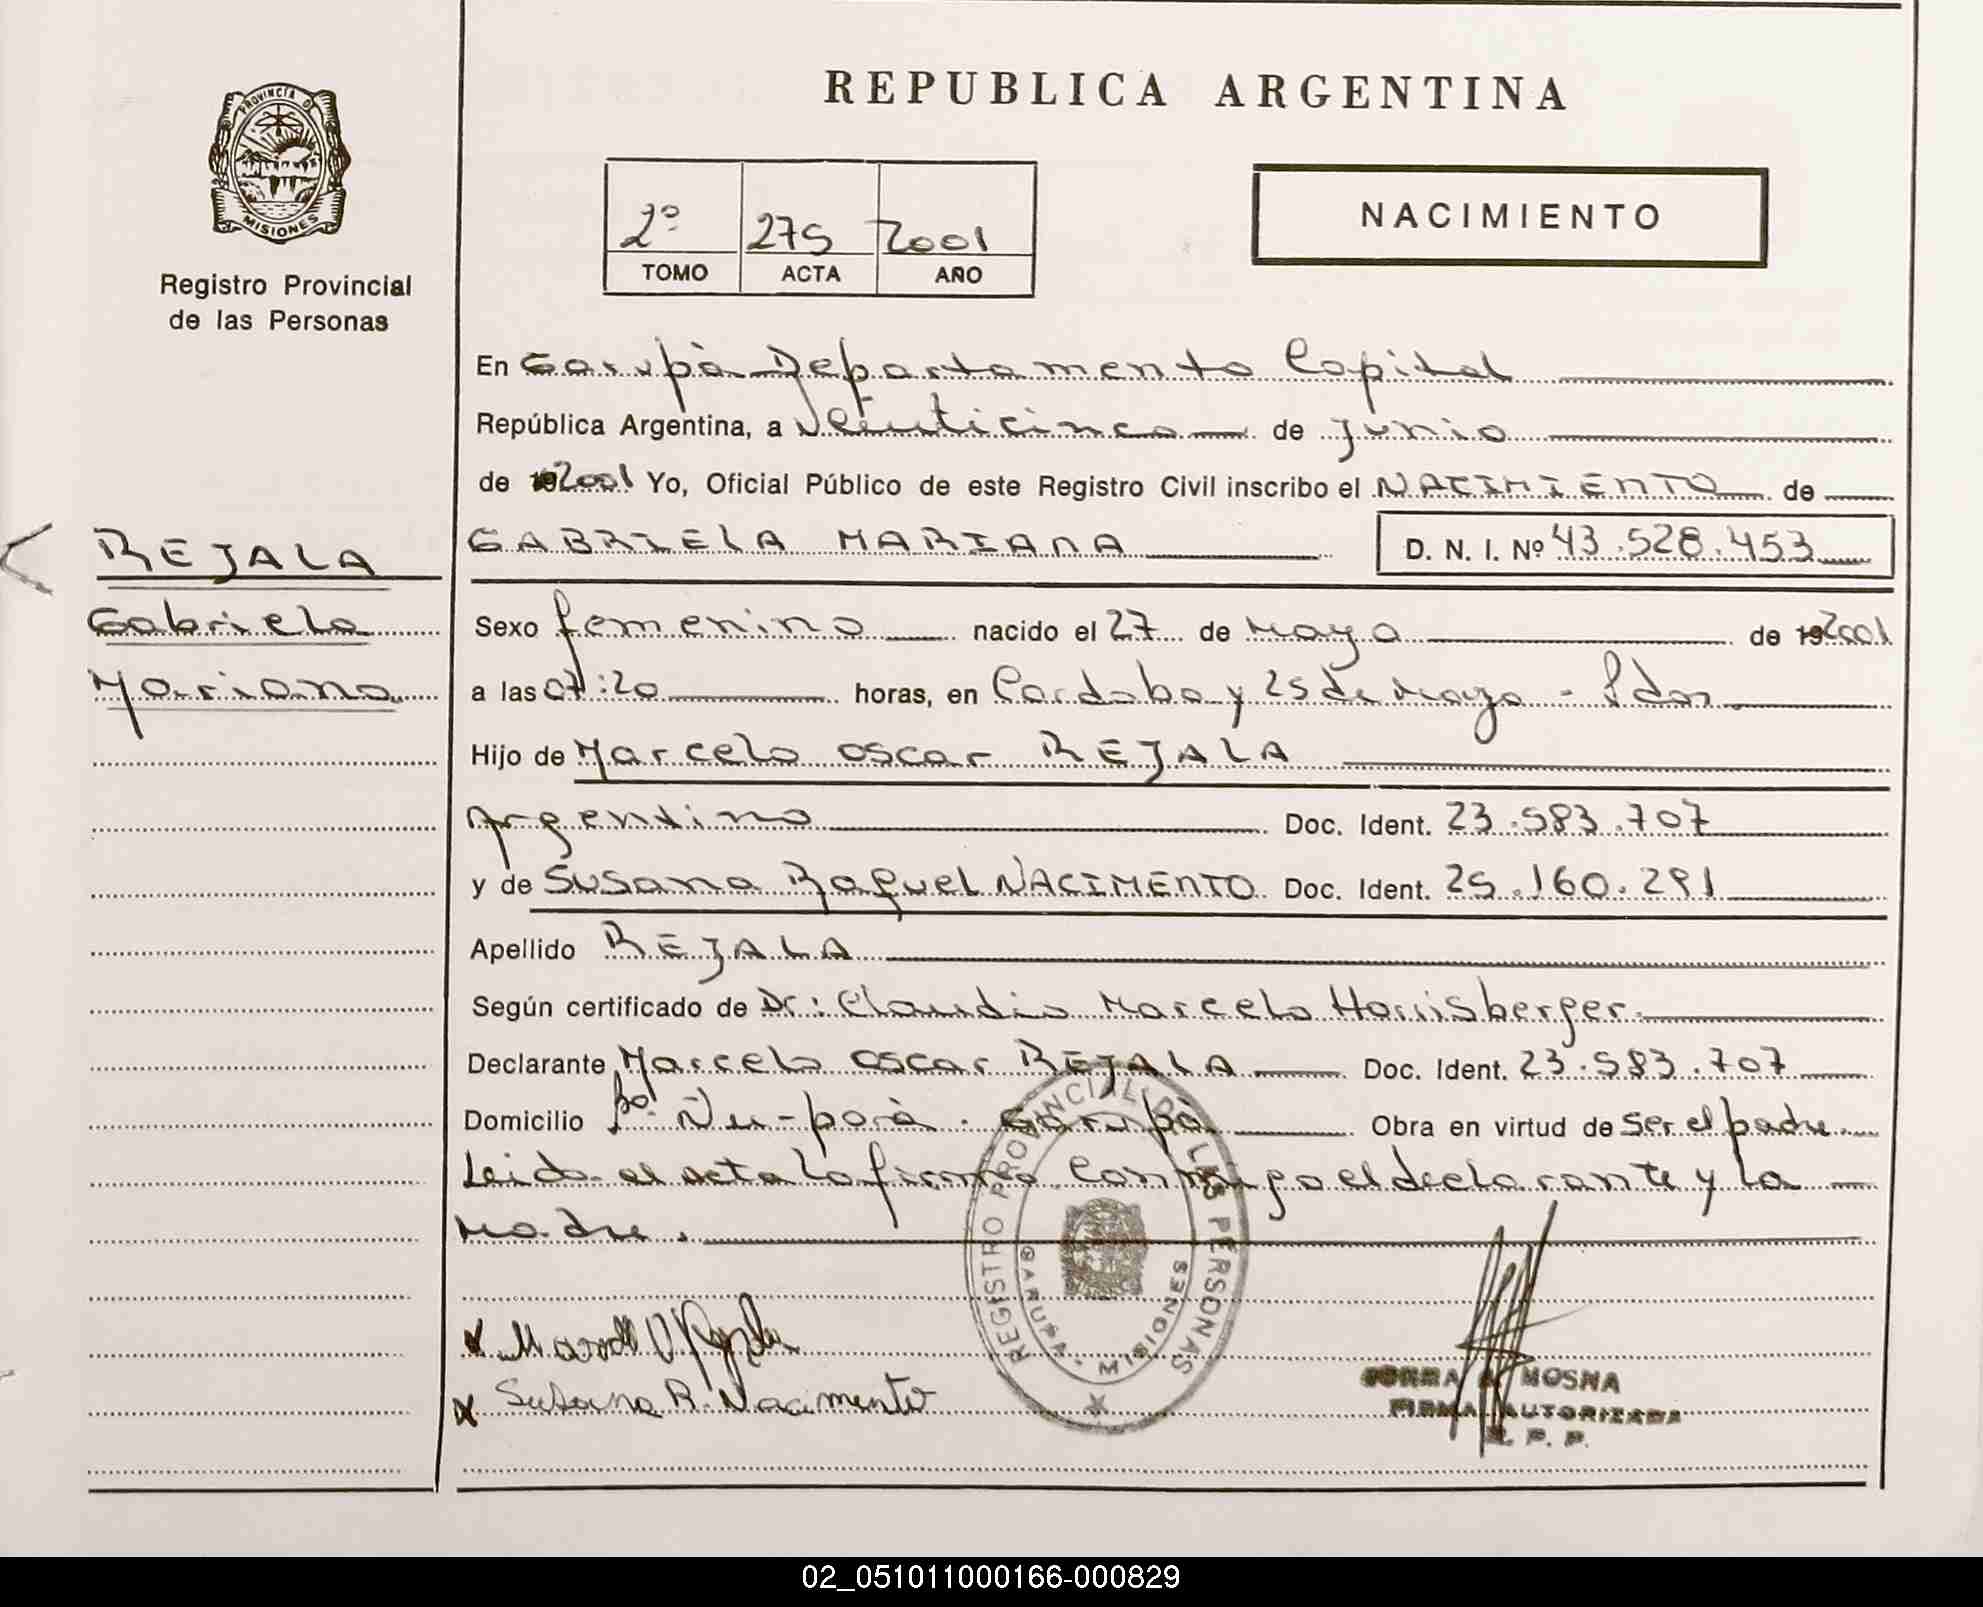 REPUBLICA ARGENTINA
PROVINCIA DE
MISIONES
Registro Provincial
de las Personas
2º 275 2001
TOMO ACTA AÑO
NACIMIENTO
En Garupà Departamento Capital
República Argentina, a Veinticinco de Junio
de 192001 Yo, Oficial Público de este Registro Civil inscribo el NACIMIENTO de
REJALA
Gabriela
Mariana
GABRIELA MARIANA D. N. I. Nº 43.528.453
Sexo femenino nacido el 27 de Mayo de 192001
a las 07:20 horas, en Cordoba y 25 de Mayo - Pdas.
Hijo de Marcelo Oscar REJALA
Argentino Doc. Ident. 23.583.707
y de Susana Raquel NACIMENTO Doc. Ident. 25.160.291
Apellido REJALA
Según certificado de Dr: Claudio Marcelo
Declarante Marcelo Oscar REJALA Doc. Ident. 23.583.707
Domicilio Bº Ñu-porà. Garupà Obra en virtud de Ser el padre.
Leida el acta la firma conmigo el declarante y la
Madre.
REGISTRO PROVINCIAL DE LAS PERSONAS
GARUPA - MISIONES
Susana R. Nacimento
MOSNA
FIRMA AUTORIZADA
R. P. P.
02_051011000166-000829